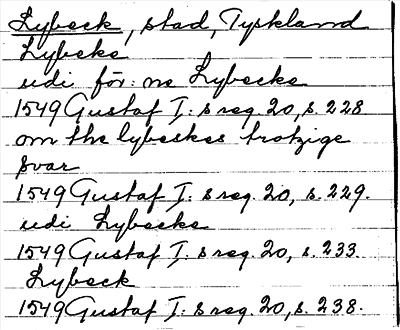 Lybeck, stad, Tyskland
Lybeke
udi för: ne Lybecke
1549 Gustaf I: s reg. 20, s. 228
om the lybeskes trotzige
svar
1549 Gustaf I: s reg. 20, s. 229.
udi Lybecke
1549 Gustaf I: s reg. 20, s. 233.
Lybeck
1549 Gustaf I: s reg. 20, s. 238.